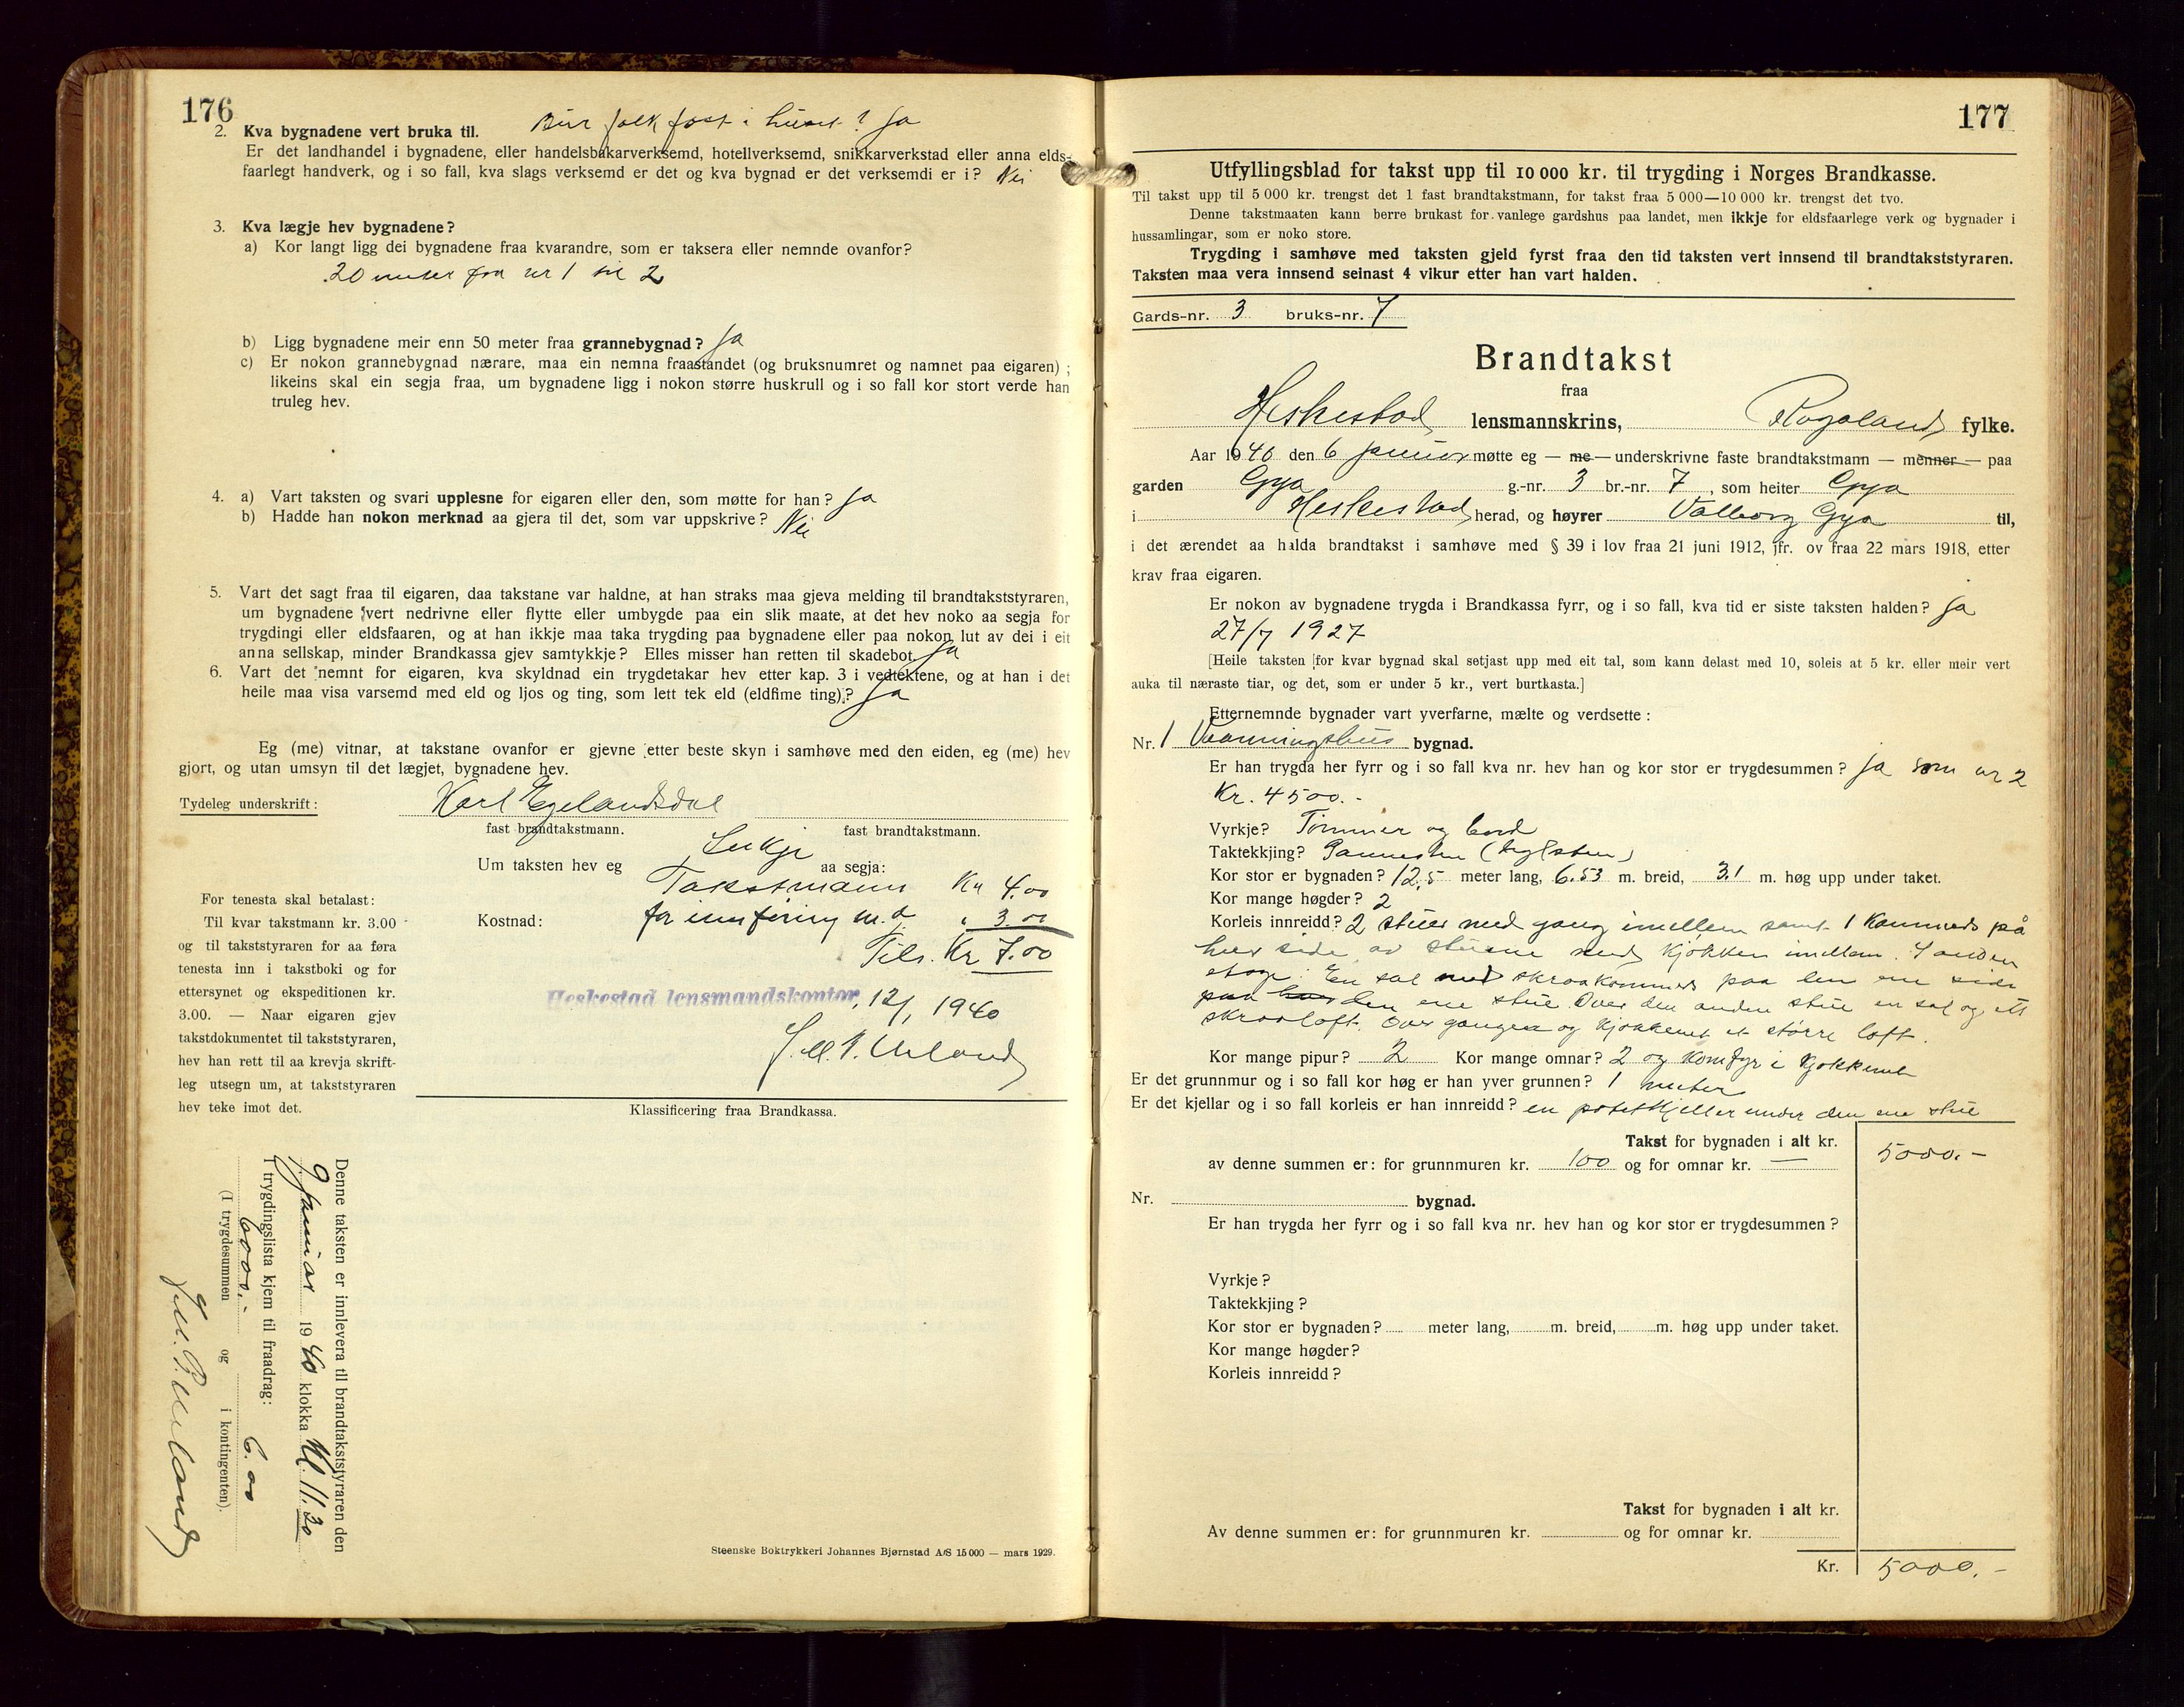 176
2. Kva bygnadene vert bruka til. Bur folk fast i huset? Ja
Er det landhandel i bygnadene, eller handelsbakarverksemd, hotellverksemd, snikkarverkstad eller anna elds-
faarlegt handverk, og i so fall, kva slags verksemd er det og kva bygnad er det verksemdi er i? Nei
3. Kva lægje hev bygnadene?
a) Kor langt ligg dei bygnadene fraa kvarandre, som er taksera eller nemnde ovanfor?
20 meter fra nr 1 til 2
b) Ligg bygnadene meir enn 50 meter fraa grannebygnad? Ja
c) Er nokon grannebygnad nærare, maa ein nemna fraastandet (og bruksnumret og namnet paa eigaren);
likeins skal ein segja fraa, um bygnadene ligg i nokon større huskrull og i so fall kor stort verde han
truleg hev.
4. a) Vart taksten og svari upplesne for eigaren eller den, som møtte for han? Ja
b) Hadde han nokon merknad aa gjera til det, som var uppskrive? Nei
5. Vart det sagt fraa til eigaren, daa takstane var haldne, at han straks maa gjeva melding til brandtakststyraren,
um bygnadene vert nedrivne eller flytte eller umbygde paa ein slik maate, at det hev noko aa segja for
trygdingi eller eldsfaaren, og at han ikkje maa taka trygding paa bygnadene eller paa nokon lut av dei i eit
anna sellskap, minder Brandkassa gjev samtykkje? Elles misser han retten til skadebot. Ja
6. Vart det nemnt for eigaren, kva skyldnad ein trygdetakar hev etter kap. 3 i vedtektene, og at han i det
heile maa visa varsemd med eld og ljos og ting, som lett tek eld (eldfime ting)? Ja
Eg (me) vitnar, at takstane ovanfor er gjevne etter beste skyn i samhøve med den eiden, eg (me) hev
gjort, og utan umsyn til det lægjet, bygnadene hev.
Tydeleg underskrift: Karl Egelandsdal
fast brandtakstmann. fast brandtakstmann.
Um taksten hev eg Inkje aa segja:
Kostnad: Takstmann Kr 4.00
for innføring m.v. " 3.00
Tils. Kr 7.00
For tenesta skal betalast:
Til kvar takstmann kr. 3.00
og til takststyraren for aa føra
tenesta inn i takstboki og for
ettersynet og ekspeditionen kr.
3.00. — Naar eigaren gjev
takstdokumentet til takststyraren,
hev han rett til aa krevja skrift-
leg utsegn um, at takststyraren
hev teke imot det.
Heskestad lensmandskontor, 12/1 1940
Klassificering fraa Brandkassa.
Denne taksten er innlevera til brandtakststyraren den
9 januar 1940 klokka kl. 11.30
I trygdingslista kjem til fraadrag:
6000.- 6.00
(I trygdesummen og i kontingenten).
Steenske Boktrykkeri Johannes Bjørnstad A/S 15 000 — mars 1929.
177
Utfyllingsblad for takst upp til 10 000 kr. til trygding i Norges Brandkasse.
Til takst upp til 5 000 kr. trengst det 1 fast brandtakstmann, for takst fraa 5 000—10 000 kr. trengst det tvo.
Denne takstmaaten kann berre brukast for vanlege gardshus paa landet, men ikkje for eldsfaarlege verk og bygnader i
hussamlingar, som er noko store.
Trygding i samhøve med taksten gjeld fyrst fraa den tid taksten vert innsend til brandtakststyraren.
Taksten maa vera innsend seinast 4 vikur etter han vart halden.
Gards-nr. 3 bruks-nr. 7
Brandtakst
fraa
Heskestad lensmannskrins, Rogaland fylke.
Aar 1940 den 6 januar møtte eg — me — underskrivne faste brandtakstmann — menner — paa
garden Gya g.-nr. 3 br.-nr. 7, som heiter Gya
i Heskestad herad, og høyrer Valborg Gya til,
i det ærendet aa halda brandtakst i samhøve med § 39 i lov fraa 21 juni 1912, jfr. ov fraa 22 mars 1918, etter
krav fraa eigaren.
Er nokon av bygnadene trygda i Brandkassa fyrr, og i so fall, kva tid er siste taksten halden? Ja
27/7 1927
[Heile taksten for kvar bygnad skal setjast upp med eit tal, som kann delast med 10, soleis at 5 kr. eller meir vert
auka til næraste tiar, og det, som er under 5 kr., vert burtkasta.]
Etternemnde bygnader vart yverfarne, mælte og verdsette:
Nr. 1 Vaaningshus bygnad.
Er han trygda her fyrr og i so fall kva nr. hev han og kor stor er trygdesummen? Ja som nr 2
Kr. 4500.-
Vyrkje? Tømmer og bord
Taktekkjing? Pannesten (teglsten)
Kor stor er bygnaden? 12,5 meter lang, 6.53 m. breid, 3.1 m. høg upp under taket.
Kor mange høgder? 2
Korleis innreidd? 2 stuer med gang imellem samt 1 kammers på
hver side av stuene med kjøkken imellem. I anden
etage: En sal med skraakammers paa den ene side
paa hver den ene stue. Over den anden stue en sal og ett
skraaloft. Over gangen og kjøkkenet et større loft.
Kor mange pipur? 2 Kor mange omnar? 2 og komfyr i kjøkkenet
Er det grunnmur og i so fall kor høg er han yver grunnen? 1 meter
Er det kjellar og i so fall korleis er han innreidd? en potetkjeller under den ene stue
Takst for bygnaden i alt kr. 5000.-
av denne summen er: for grunnmuren kr. 100 og for omnar kr. —
Nr. bygnad.
Er han trygda her fyrr og i so fall kva nr. hev han og kor stor er trygdesummen?
Vyrkje?
Taktekkjing?
Kor stor er bygnaden? meter lang, m. breid, m. høg upp under taket.
Kor mange høgder?
Korleis innreidd?
Takst for bygnaden i alt kr.
Av denne summen er: for grunnmuren kr. og for omnar kr.
Kr. 5000.-